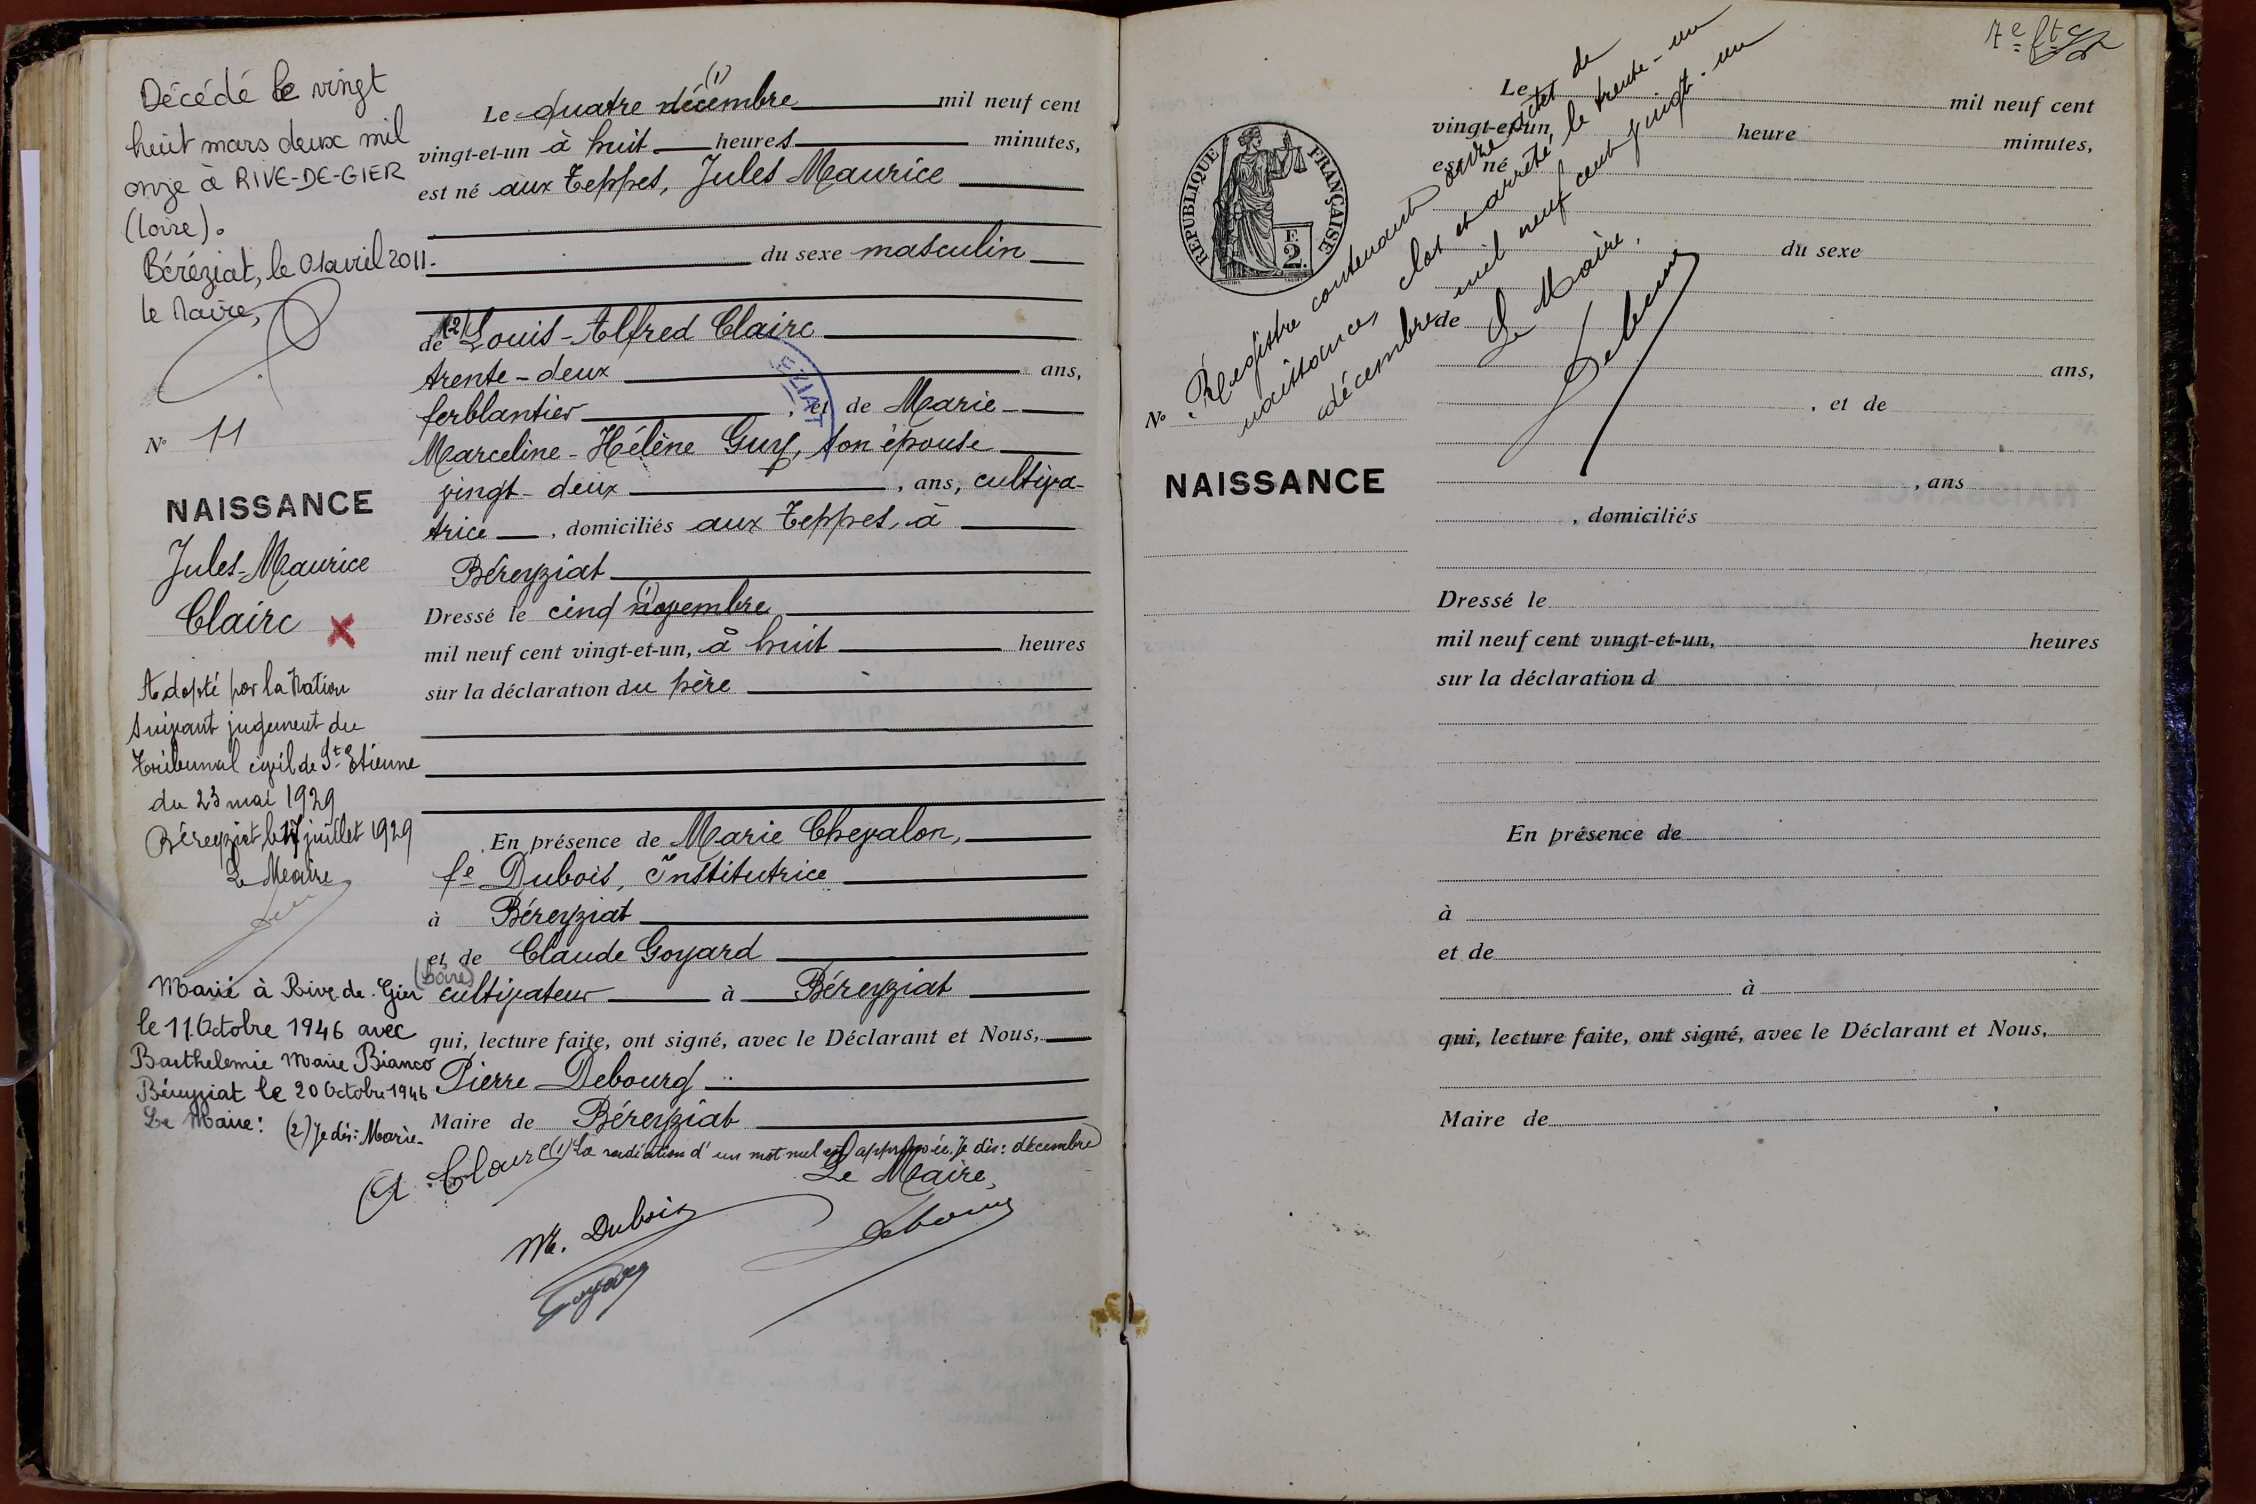 Décédé le vingt
huit mars deux mil
onze à RIVE-DE-GIER
(Loire).
Béréziat, le 01 avril 2011.
le Maire,
N° 11
NAISSANCE
Jules-Maurice
Clairc
Adopté par la Nation
suivant jugement du
Tribunal civil de St Etienne
du 23 mai 1929
Béreyziat, le 17 juillet 1929
Le Maire
Marié à Rive-de-Gier (Loire)
le 11 Octobre 1946 avec
Barthelemie Marie Bianco
Béreyziat le 20 Octobre 1946
Le Maire:
(2) Je dis: Marie-
Le quatre décembre (1) mil neuf cent
vingt-et-un à huit heures minutes,
est né aux Teppes, Jules Maurice
du sexe masculin
de (2) Louis-Alfred Clairc
trente-deux ans,
ferblantier, et de Marie-
EZIAT
Marceline-Hélène Guy, son épouse
vingt-deux, ans, cultiva-
trice, domiciliés aux Teppes, à
Béreyziat
Dressé le cinq (1) novembre
mil neuf cent vingt-et-un, à huit heures
sur la déclaration du père
En présence de Marie Chevalon,
fe Dubois, Institutrice
à Béreyziat
et de Claude Goyard
cultivateur à Béreyziat
qui, lecture faite, ont signé, avec le Déclarant et Nous,
Pierre Debourg
Maire de Béreyziat
(1) La radiation d'un mot nul est approuvée. Je dis: décembre
Le Maire,
A. Clairc
M. Dubois
Debourg
Goyard
7e
REPUBLIQUE FRANÇAISE
F.
2.
Registre contenant onze actes de
naissances, clos et arrêté le trente-un
décembre mil neuf cent vingt-un
Le Maire,
Debourg
N°
NAISSANCE
Le mil neuf cent
vingt-et-un heure minutes,
est né
du sexe
de
ans,
, et de
, ans
, domiciliés
Dressé le
mil neuf cent vingt-et-un, heures
sur la déclaration d
En présence de
à
et de
à
qui, lecture faite, ont signé, avec le Déclarant et Nous,
Maire de